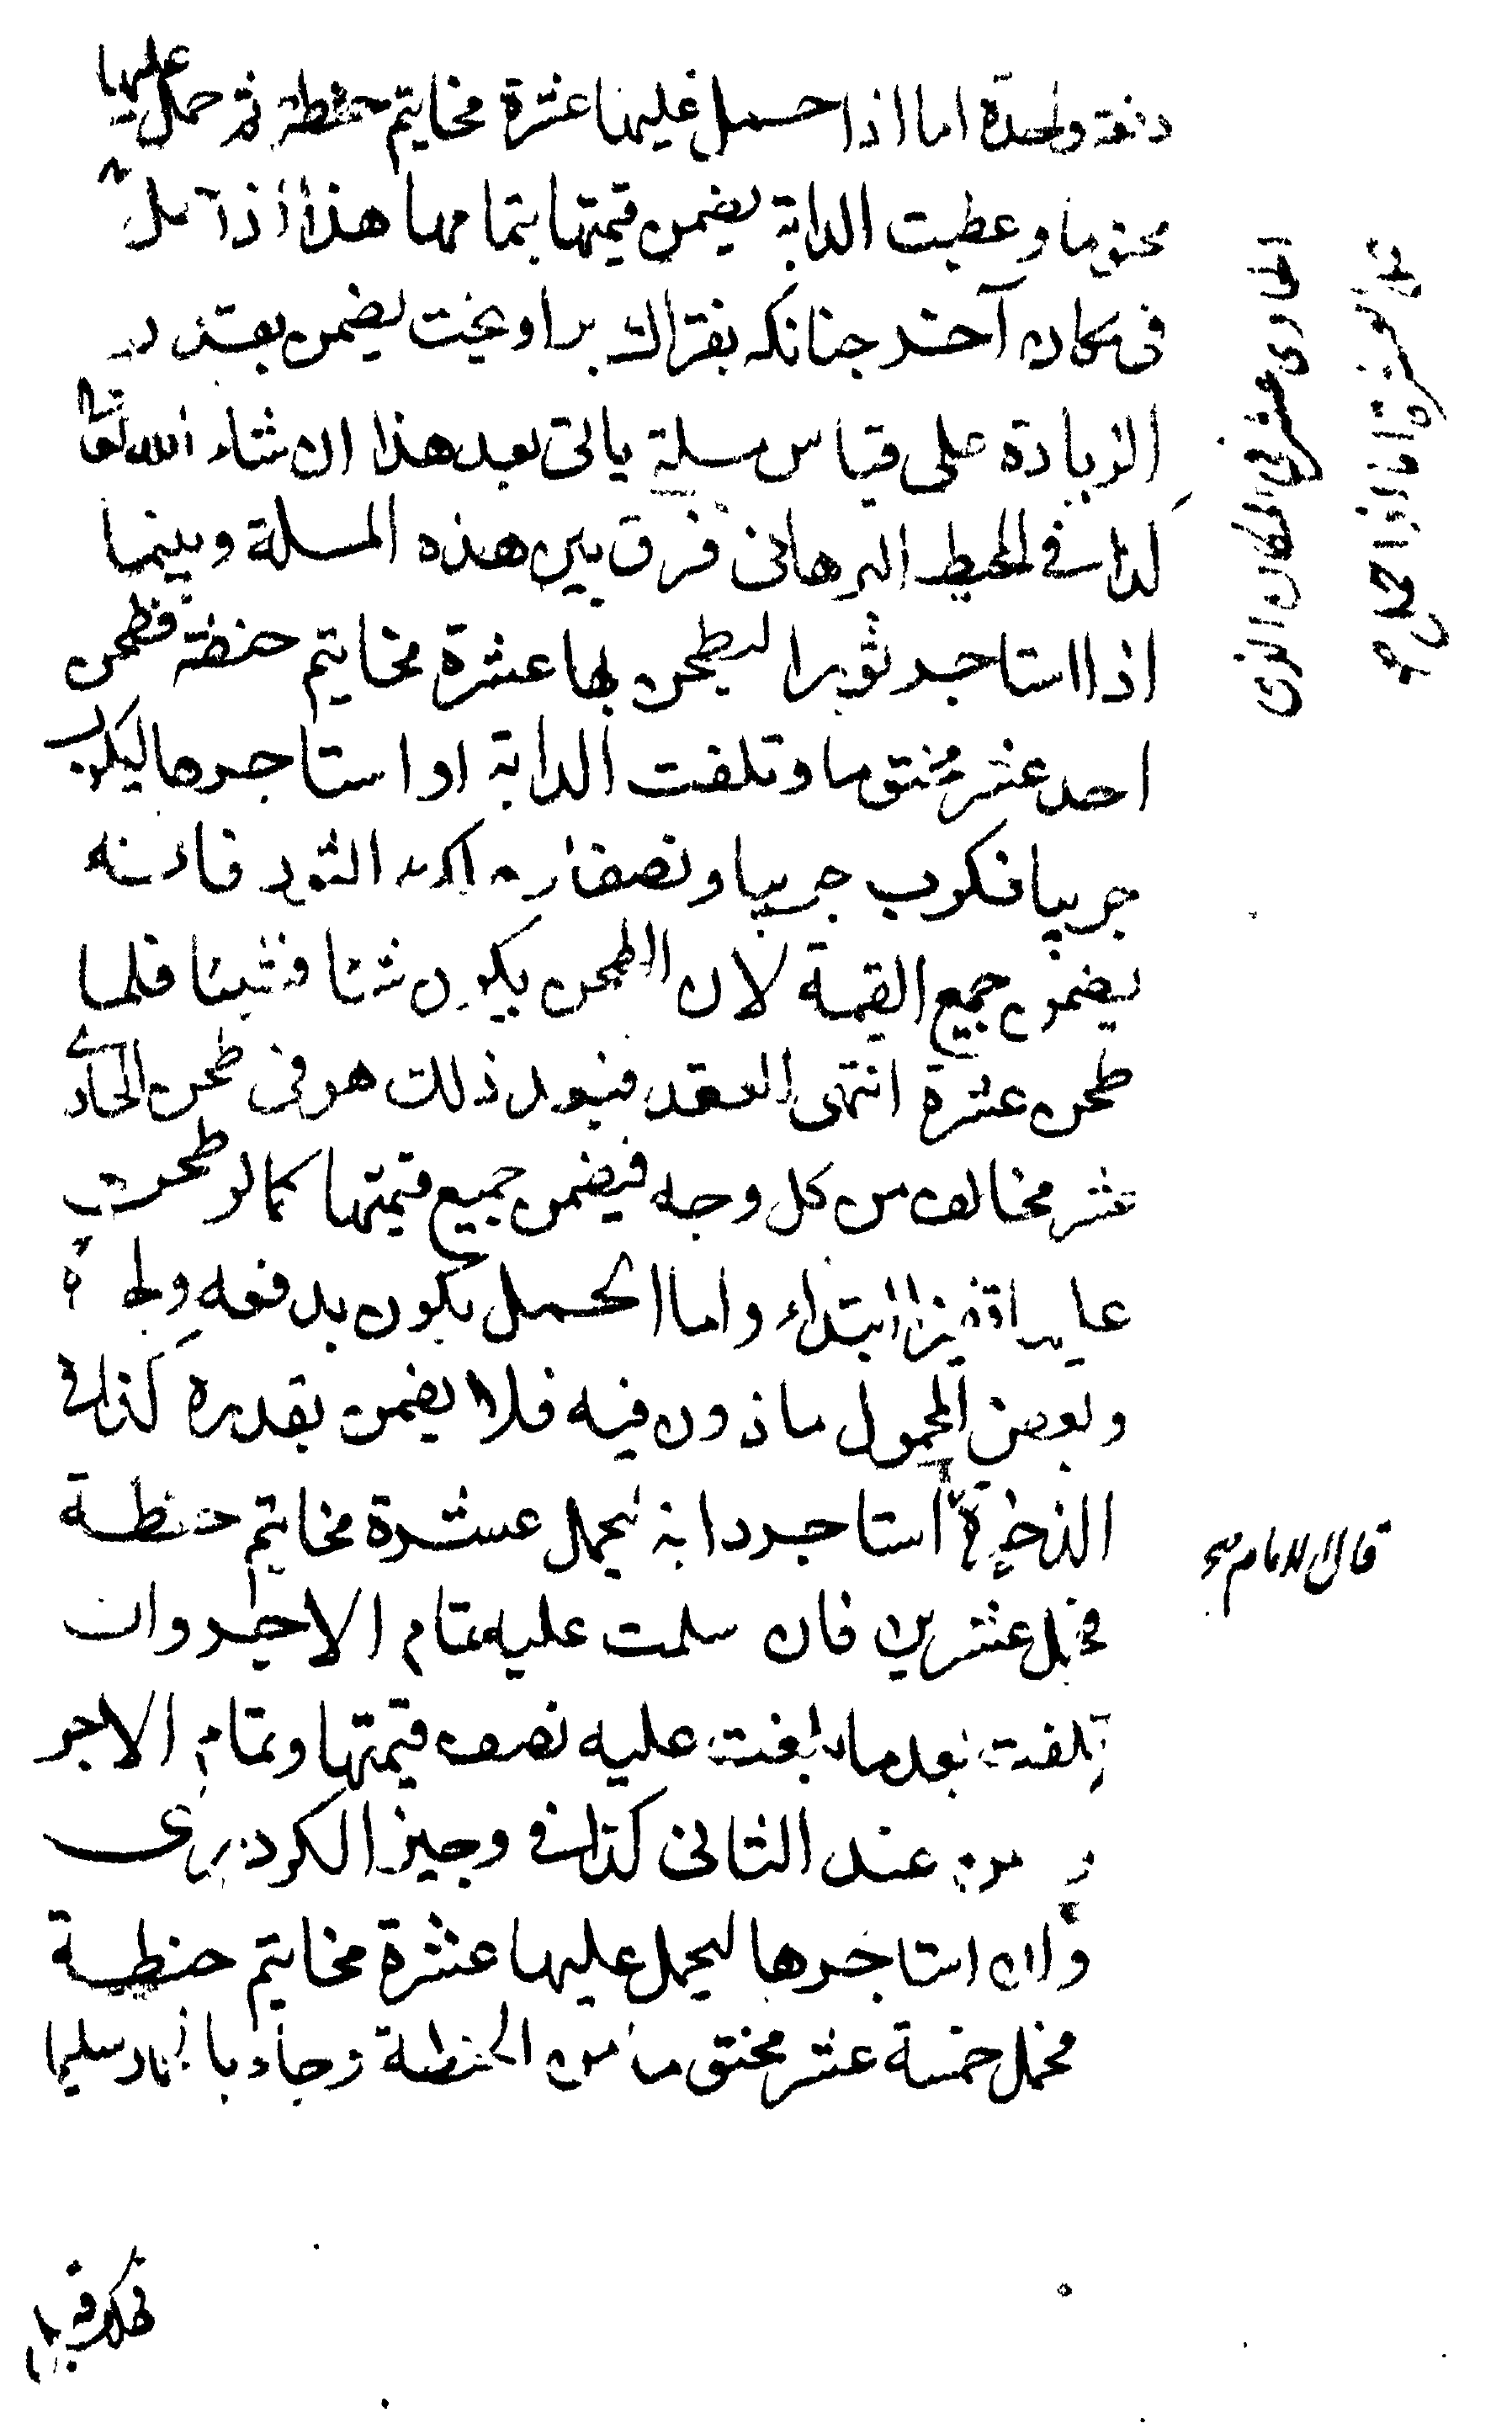 دفعة واحدة اما اذا حمل عليها عشرة مخاتيم حنطة ثم حمل عليها
مختوما وعطبت الدابة يضمن قيمتها بتمامها هذا اذا
فى مكان آخر جنانكه بفتراك براويخت يضمن بقدر
الزيادة على قياس مسلة ياتى بعد هذا ان شاء الله تعالى
كذا فى المحيط البرهانى فرق بين هذه المسلة وبينما
اذا استاجر ثورا ليطحن بها عشرة مخاتيم حنطة فطحن
احد عشر مختوما وتلفت الدابة او استاجرها ليكرب
جريبا فكرب جريبا ونصفا الثور فانه
يضمن جميع القيمة لان الطحن يكون شئا فشيئا فلما
طحن عشرة انتهى العقد فبعد ذلك هو فى طحن الحادى
عشر مخالف من كل وجه فيضمن جميع قيمتها كما لو طحن
عليها قفيزا ابتداء واما الحمل يكون بدفعة واحدة
وبعض المحمول ماذون فيه فلا يضمن بقدره كذا فى
الذخيرة استاجر دابة ليحمل عشرة مخاتيم حنطة
فحمل عشرين فان سلمت عليه تمام الاجر وان
تلفت بعدما بلغت عليه نصف قيمتها وتمام الاجر
عند الثانى كذا فى وجيز الكردرى
وان استاجرها ليحمل عليها عشرة مخاتيم حنطة
فحمل خمسة عشر مختوما من الحنطة وجاء بالحمار سليما
الحادى عشر فى المكان الذى
على العشرة اما اذا حمل
قال الامام صح
فهلك قبل